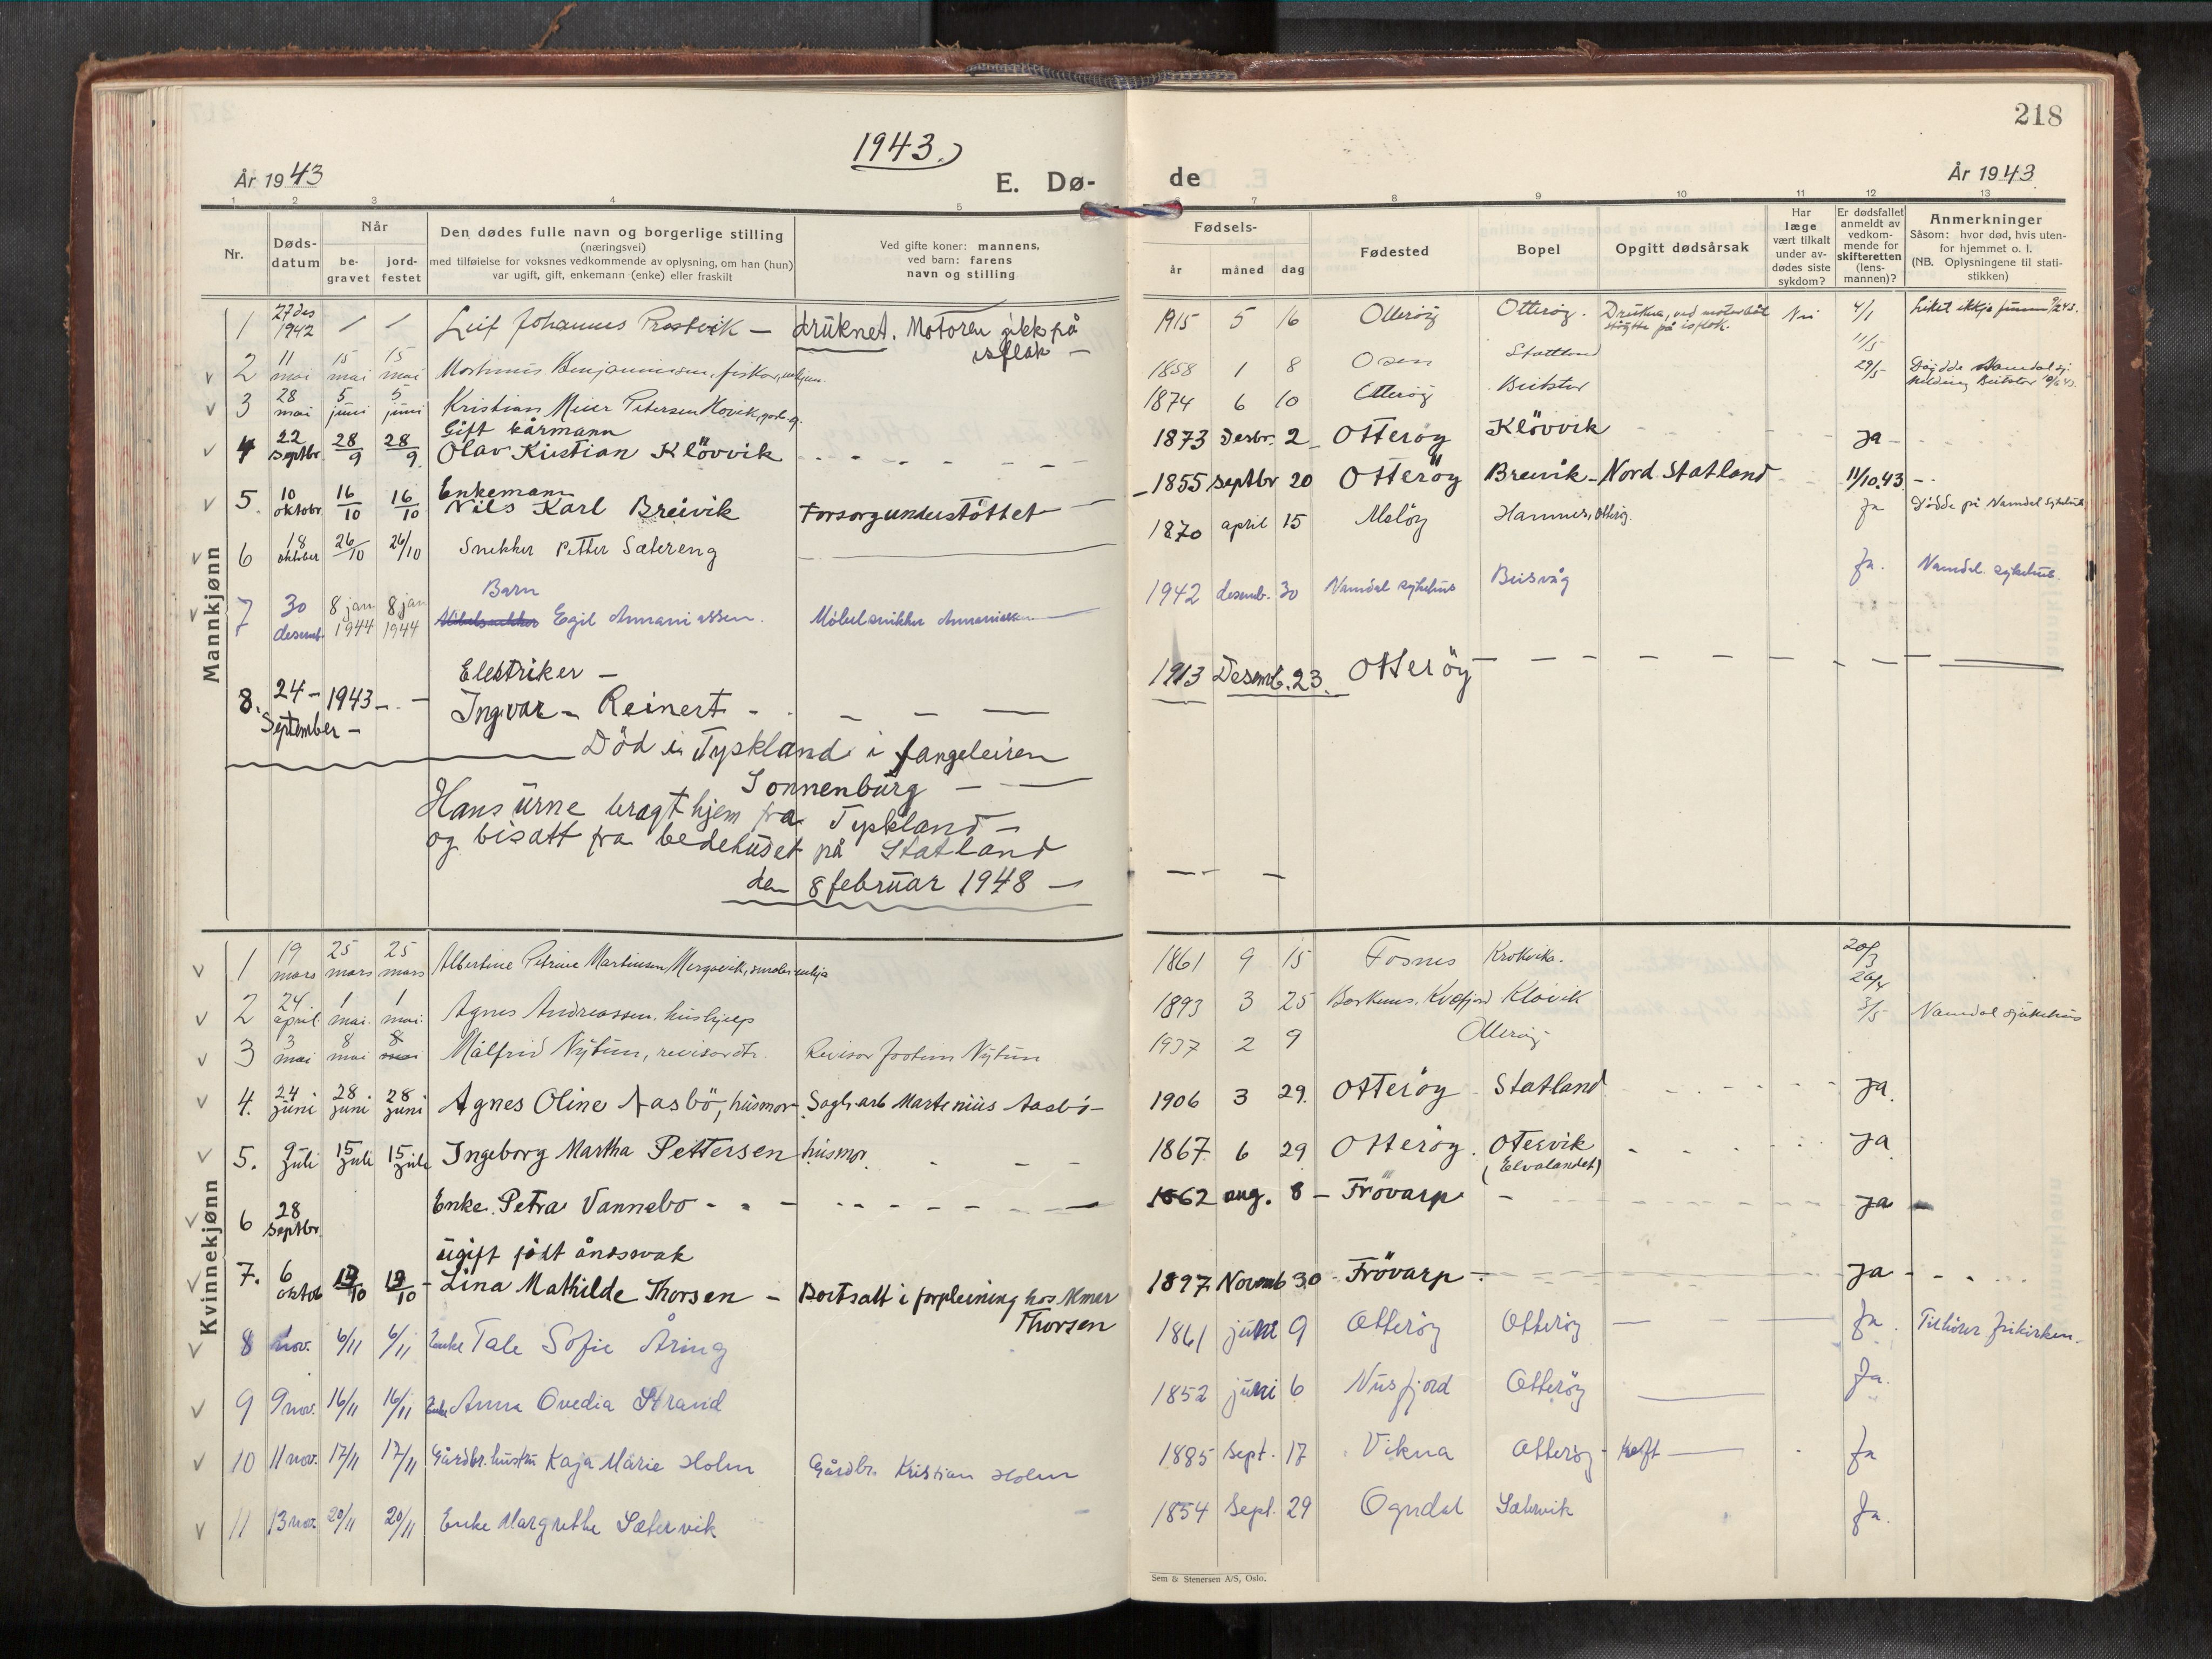 218
1943.
År 1943 E. Dø- de År 1943
1 2 3 4 5 7 8 9 10 11 12 13
Nr.
Døds-
datum
Når
be-
gravet
jord-
festet
Den dødes fulle navn og borgerlige stilling
(næringsvei)
med tilføielse for voksnes vedkommende av oplysning, om han (hun)
var ugift, gift, enkemann (enke) eller fraskilt
Ved gifte koner: mannens,
ved barn: farens
navn og stilling
Fødsels-
år måned dag
Fødested
Bopel
Opgitt dødsårsak
Har
læge
vært tilkalt
under av-
dødes siste
sykdom?
Er dødsfallet
anmeldt av
vedkom-
mende for
skifteretten
(lens-
mannen)?
Anmerkninger
Såsom: hvor død, hvis uten-
for hjemmet o. l.
(NB. Oplysningene til stati-
stikken)
Mannkjønn
1 27 des 1942 / / Leif Johannes Prestvik — drüknet. Motoren gikk på isflak — 1915 5 16 Otterøy Otterøy. Drukna, ved motorbåt støytte på isflak. Nei 4/1
2 11 mai 15 mai 15 mai Benjaminsen, fiskar, 1858 1 8 Osen Statland 11/5
3 28 mai 5 juni 5 juni Kristian Meier Petersen Hovik, 1874 6 10 Otterøy Beitstad 29/5 Døydde Namdal sj.
Melding Beitstad
4 22 Septbr 28/9 28/9 Gift kårmann
Olav Kristian Klövvik 1873 Desbr. 2 Otteröy Klövvik ja
5. 10 oktobr 16/10 16/10 Enkemann
Nils Karl Breivik Forsorgunderstöttet 1855 septbr 20 Otteröy Breivik - Nord Statland 11/10.43
6 18 oktober 26/10 26/10 Snekker Petter Sætereng 1870 april 15 Meløy Hammer, Otterøy. Ja Dødde på Namdal sykehus
7 30 desemb. 8 jan 1944 8 jan 1944 Barn
Egil Annaniassen. Møbelsnikker Annaniassen 1942 desemb. 30 Namdal sykehus Beisvåg Ja. Namdal sykehus.
8. 24 — September — 1943 Elektriker —
Ingvar — Reinert - 1913 Desemb. 23. Otteröy
Död i Tyskland i fangeleiren
Sonnenburg —
Hans urne bragt hjem fra Tyskland —
og bisatt fra bedehuset på Statland
den 8 februar 1948 —
Kvinnekjønn
1 19 mars 25 mars 25 mars Albertine Petrine Martinsen 1861 9 15 Fosnes Krokvika. 20/3
2 24 april 1 mai. 1 mai. Agnes Andreassen, hushjelp 1893 3 25 Kvæfjord Kløvik 26/4 Namdal sjukehus
3 3 mai 8 mai 8 mai Målfrid Nytun, revisor dtr. Revisor Jostein Nytun 1937 2 9 Otterøy 3/5
4. 24 juni 28 juni 28 juni Agnes Oline Aasbö, husmor Sagb. arb Martenius Aasbö 1906 3 29. Otteröy Statland ja.
5. 9 juli 15 juli 15 juli Ingeborg Martha Pettersen husmor 1867 6 29 Otteröy. Otervik
(Elvalandet) ja
6 28 Septbr. Enke. Petra Vannebo 1862 aug. 8 Frövarp ja
7. 6 oktob 19/10 19/10 ugift født åndssvak
Lina Mathilde Thorsen — Bortsatt i forpleining hos
Thorsen 1897 Novemb 30 Frövarp ja
8 1 nov. 6/11 6/11 Enke Tale Sofie Åring 1861 juni 9 Otterøy Otterøy Ja. Tilhører frikirken.
9 9 nov. 16/11 16/11 Enke Anna Ovedia Strand 1852 juni 6 Nusfjord Otterøy Ja.
10 11 nov. 17/11 17/11 Gårdbr. hustru Kaja Marie Holm Gårdbr. Kristian Holm 1885 Sept. 17 Vikna Otterøy Kreft Ja
11 13 nov. 20/11 20/11 Enke Margrethe Sætervik 1854 Sept. 29 Ogndal Sætervik Ja.
Sem & Stenersen A/S, Oslo.